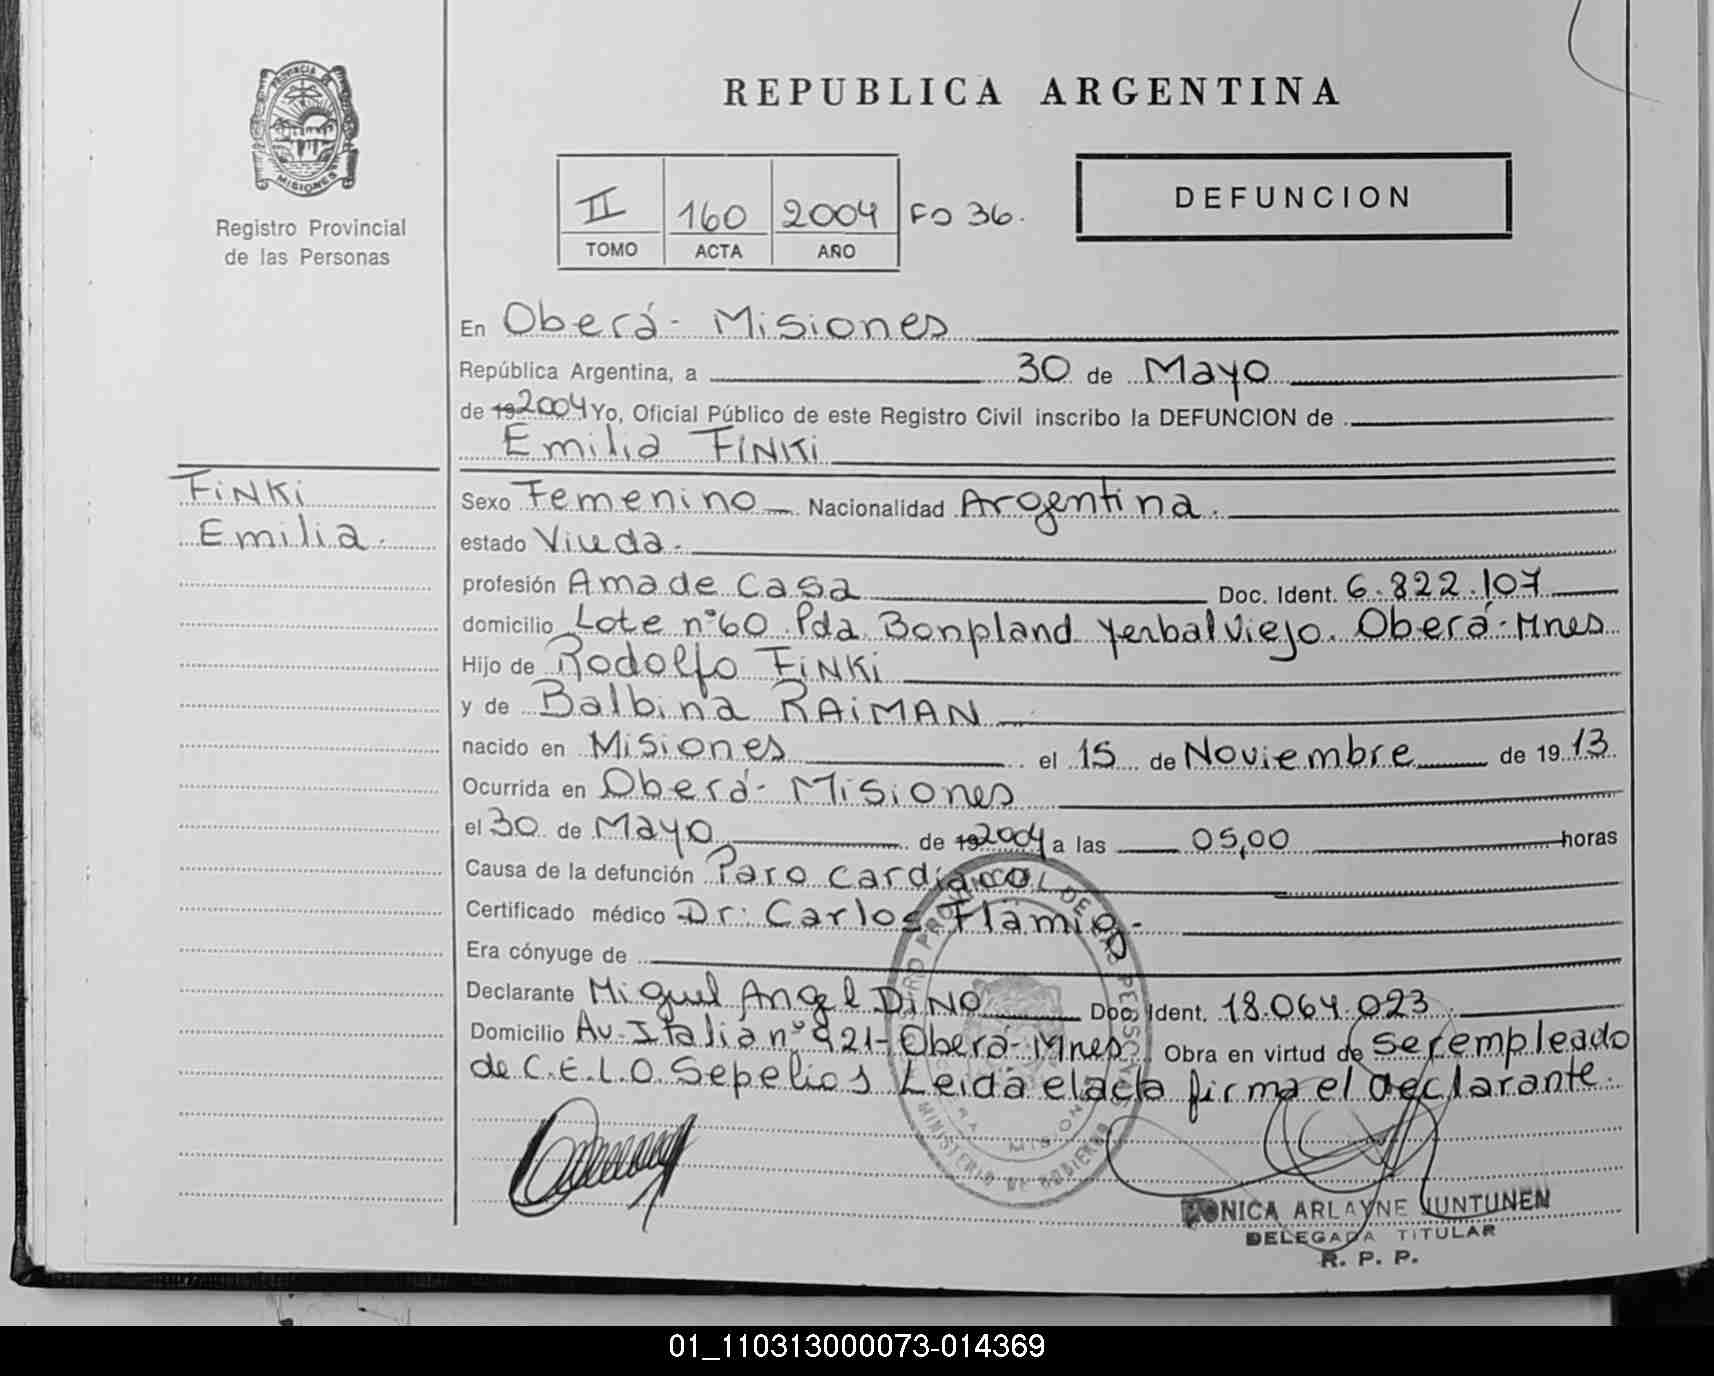 PROVINCIA DE
MISIONES
Registro Provincial
de las Personas
REPUBLICA ARGENTINA
II 160 2004 Fo 36.
TOMO ACTA AÑO
DEFUNCION
En Oberá - Misiones
República Argentina, a 30 de Mayo
de 192004 Yo, Oficial Público de este Registro Civil inscribo la DEFUNCION de
Emilia FiNKi
FiNKi
Emilia.
Sexo Femenino Nacionalidad Argentina.
estado Viuda.
profesión Ama de Casa Doc. Ident. 6.822.107
domicilio Lote nº 60 Pda Bonpland Yerbal Viejo. Oberá - Mnes
Hijo de Rodolfo FiNKi
y de Balbina RAiMAN
nacido en Misiones el 15 de Noviembre de 1913
Ocurrida en Oberá - Misiones
el 30 de Mayo de 192004 a las 05,00 horas
Causa de la defunción Paro cardíaco
Certificado médico Dr. Carlos Flamig -
Era cónyuge de
Declarante Miguel Angel DiNO Doc. Ident. 18.064.023
Domicilio Av. Italia nº 421 - Oberá - Mnes Obra en virtud de ser empleado
de C.E.L.O Sepelios Leida el acta firma el declarante.
MINISTERIO DE GOBIERNO
MONICA ARLAYNE JUNTUNEN
DELEGADA TITULAR
R. P. P.
01_110313000073-014369